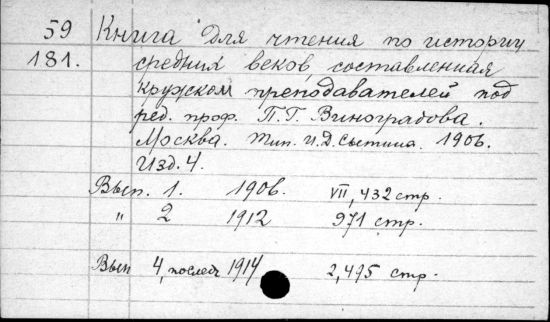 59 Книга для чтения по истории
181. средних веков, составленная
кружком преподавателей под
ред. проф. П.Г. Виноградова.
Москва. Тип. И.Д. Сытина. 1906.
Изд. 4.
Вып. 1. 1906. VII, 432 стр.
" 2 1912 971 стр.
Вып 4, последн 1914 2, 495 стр.